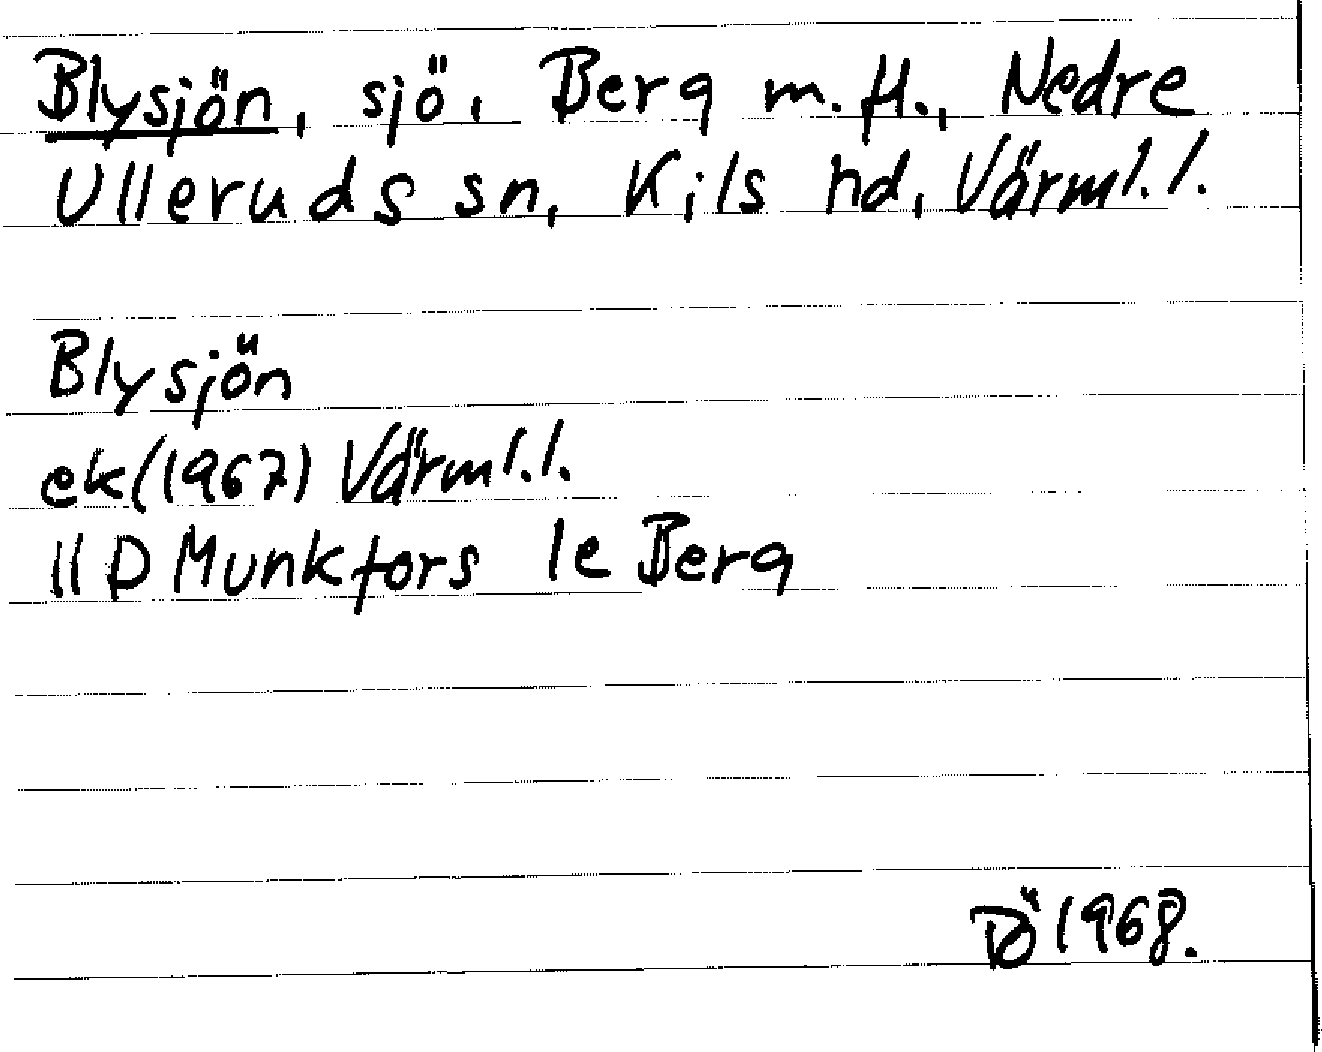 Blysjön, sjö, Berg m.fl., Nedre
Ulleruds sn, Kils hd, Värml.l.
Blysjön
ek(1967) Värml.l.
11D Munkfors 1e Berg
BÖ 1968.